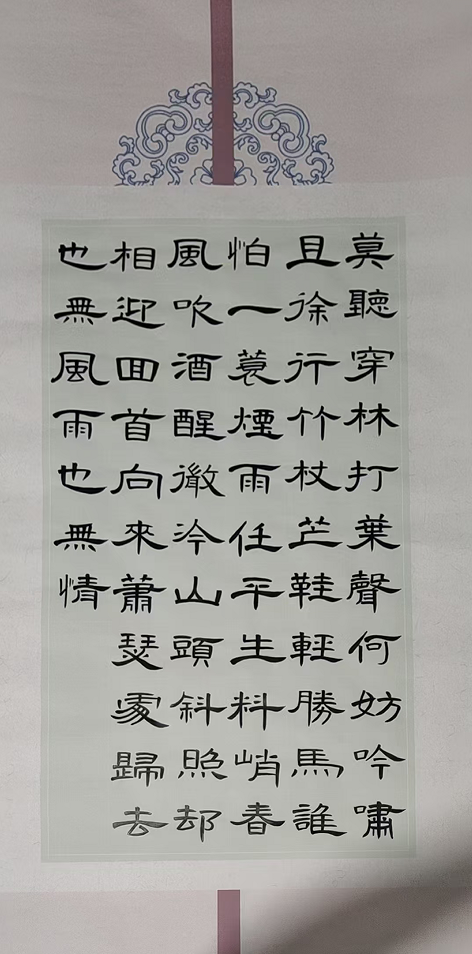 莫聽穿林打葉聲何妨吟嘯
且徐行竹杖芒鞋輕勝馬誰
怕一蓑煙雨任平生料峭春
風吹酒醒微冷山頭斜照却
相迎回首向來蕭瑟處歸去
也無風雨也無情